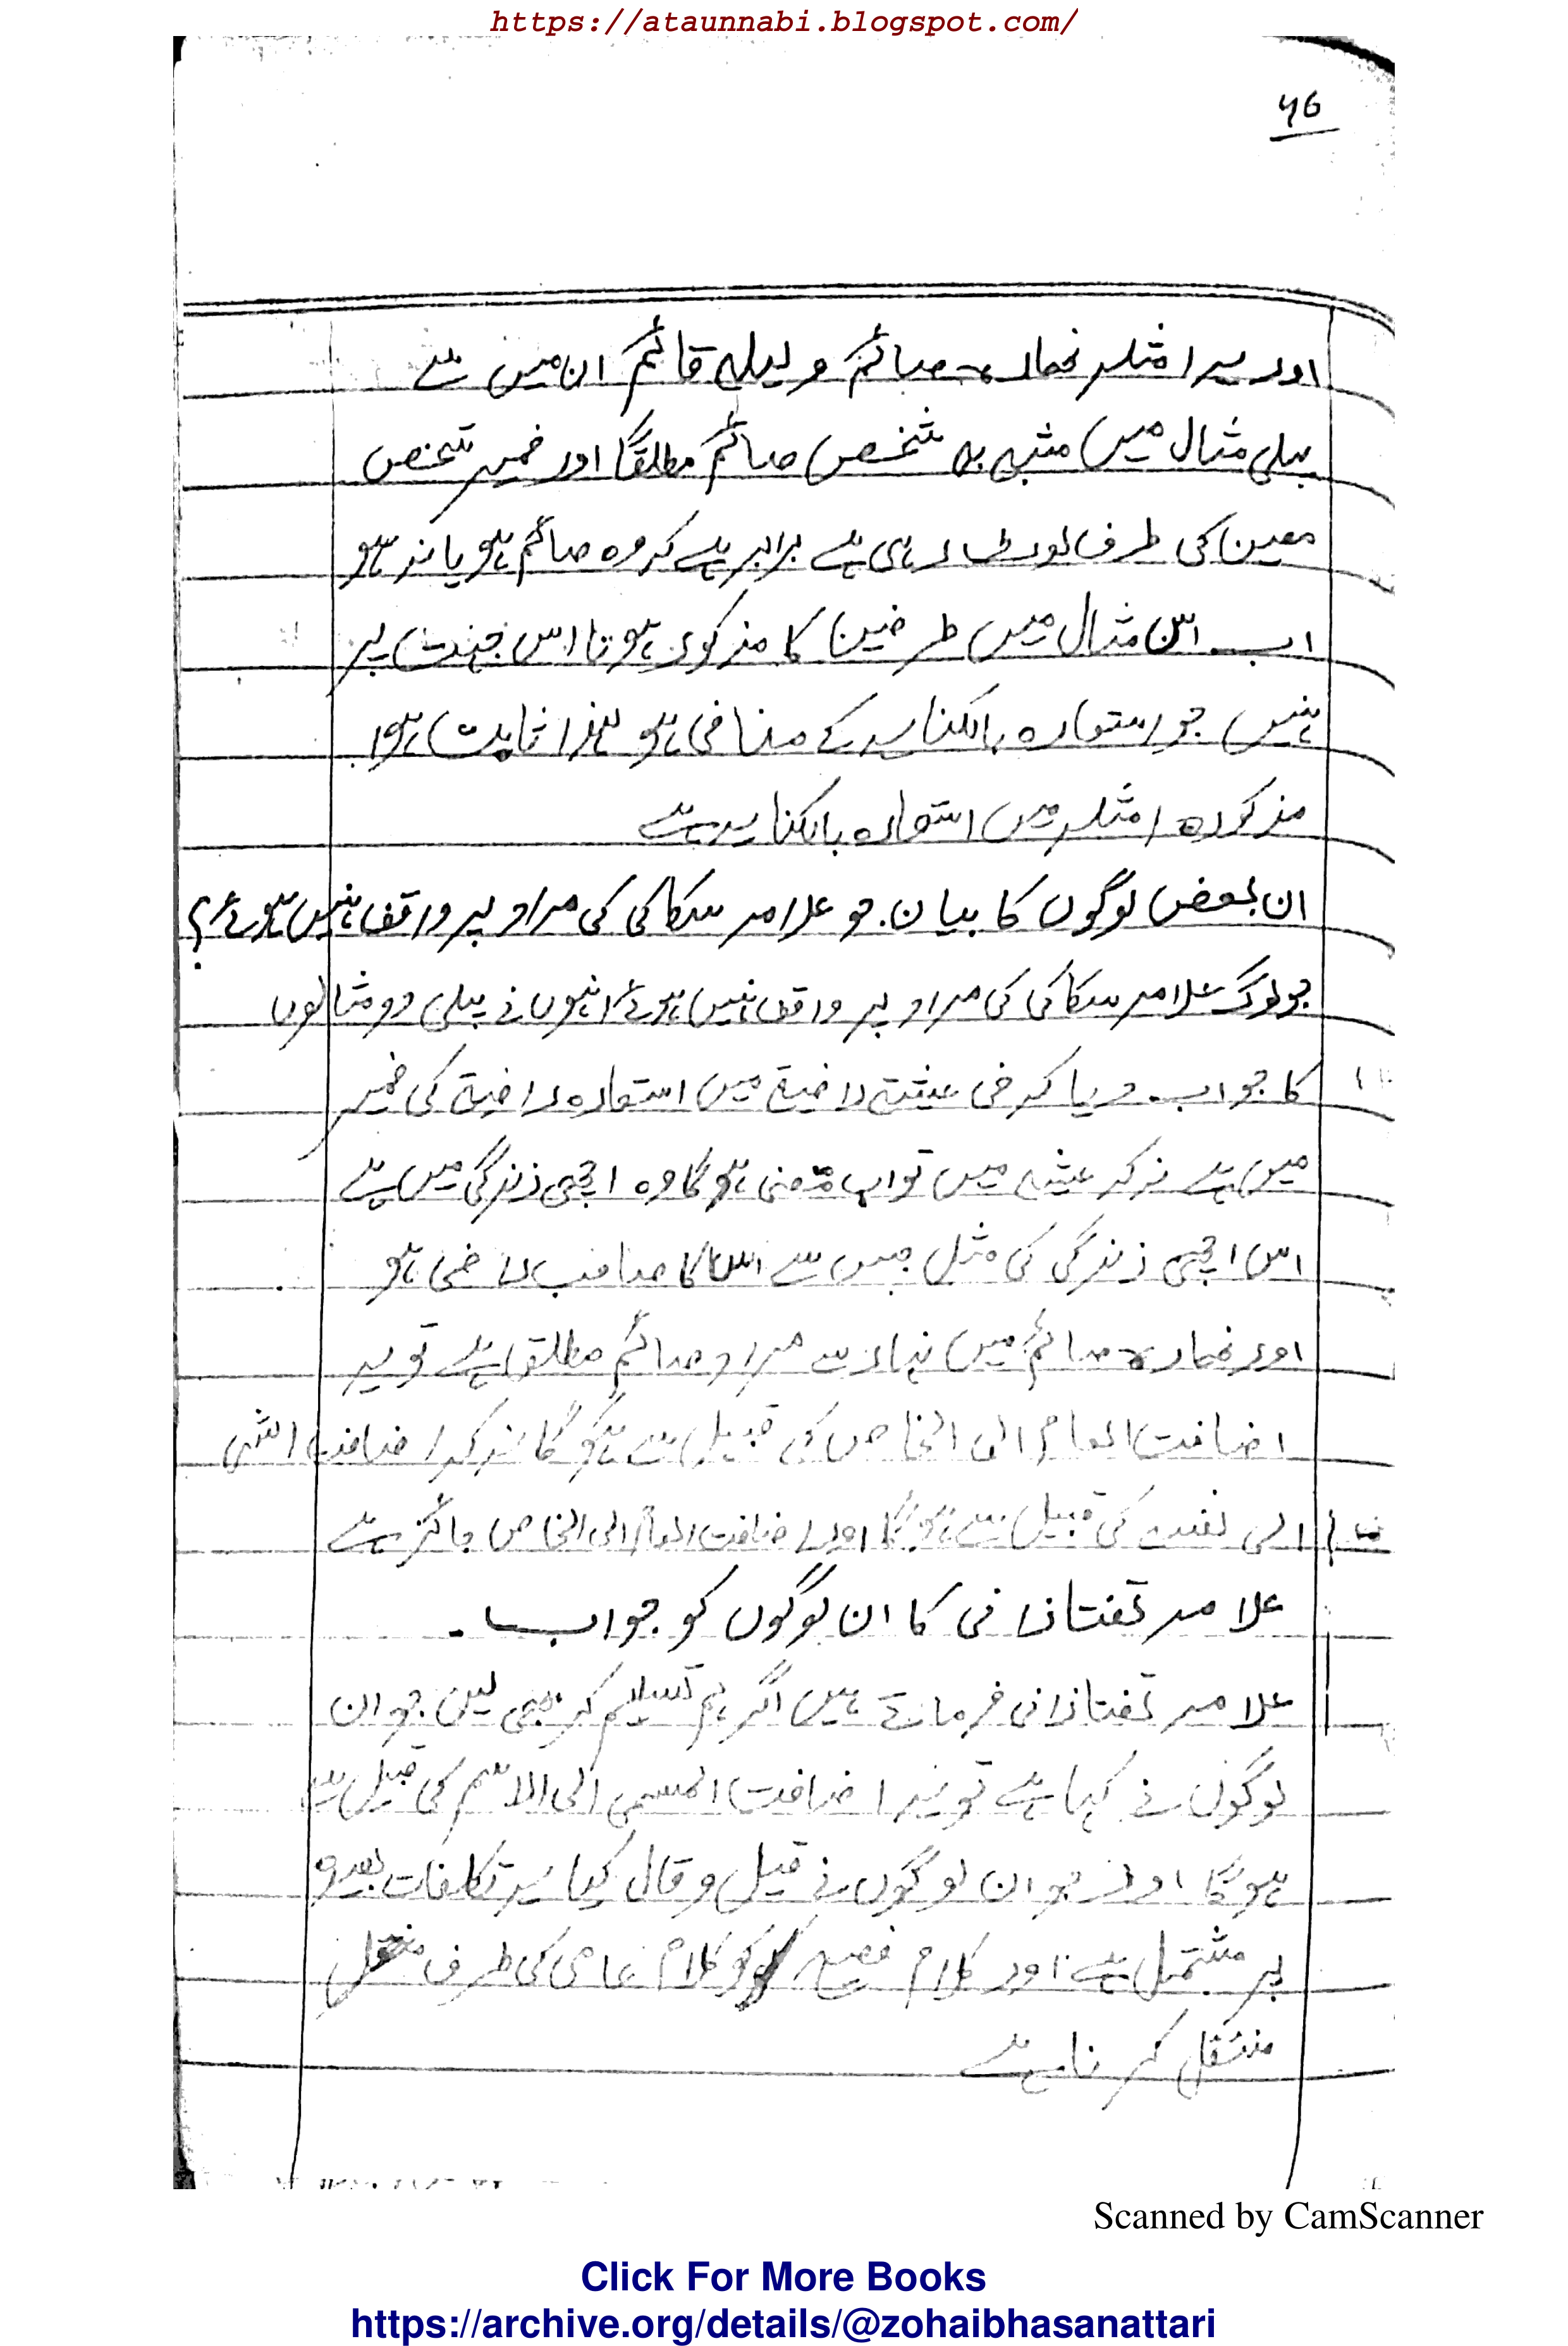 https://ataunnabi.blogspot.com/
46
اور یہ امثلہ نھارہ صائم و لیلہ قائم ان میں سے
پہلی مثال میں مشبہ بہ شخص صائم مطلقًا اور ضمیر شخص
معین کی طرف لوٹ رہی ہے برابر ہے کہ وہ صائم ہو یا نہ ہو
اب اس مثال میں طرفین کا مذکور ہونا اس جہت پر
نہیں جو استعارہ بالکنایہ کے منافی ہو لہذا ثابت ہوا
مذکورہ امثلہ میں استعارہ بالکنایہ ہے
ان بعض لوگوں کا بیان جو علامہ سکاکی کی مراد پر واقف نہیں ہوئے؟
جو لوگ علامہ سکاکی کی مراد پر واقف نہیں ہوئے انہوں نے پہلی دو مثالوں
کا جواب دیا کہ فی عیشۃ راضیۃ میں استعارہ راضیۃ کی ضمیر
میں ہے نہ کہ عیشہ میں تو اب معنی ہوگا وہ اچھی زندگی میں ہے
اس اچھی زندگی کی مثل جس سے اس کا صاحب راضی ہو
اور نھارہ صائم میں نہار سے مراد صائم مطلقا ہے تو یہ
اضافت العام الی الخاص کی قبیل سے ہوگا نہ کہ اضافت الشی
الی نفسہ کی قبیل سے ہوگا اور اضافت العام الی الخاص جائز ہے
علامہ تفتازانی کا ان لوگوں کو جواب ۔
علامہ تفتازانی فرماتے ہیں اگر ہم تسلیم کر بھی لیں جو ان
لوگوں نے کہا ہے تو یہ اضافت المسمی الی الاسم کی قبیل سے
ہوگا اور جو ان لوگوں نے قیل و قال کیا یہ تکلفات بعیدہ
پر مشتمل ہے اور کلام فصیح کو کلام عامی کی طرف
منتقل کرنا ہے
Scanned by CamScanner
Click For More Books
https://archive.org/details/@zohaibhasanattari